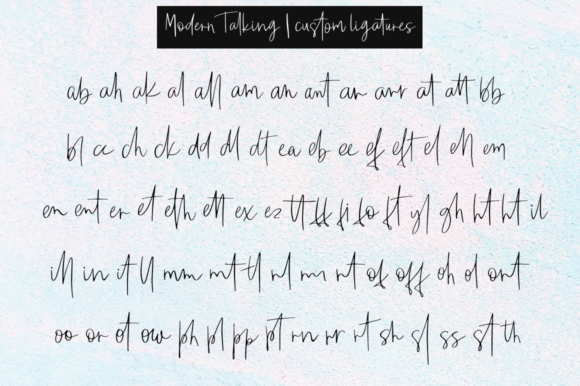 Modern Talking | custom ligatures
ab ah ak al all am an ant ar arr at att bb
bl cc ch ck dd dl dt ea eb ee ef eft el ell em
en ent er et eth ett ex ez tt ff fi fo ft gl gh ht ht il
ill in it ll mm mt tl nl nn nt of off oh ol ont
oo or ot ow ph pl pp pt rn rr rt sh sl ss st th